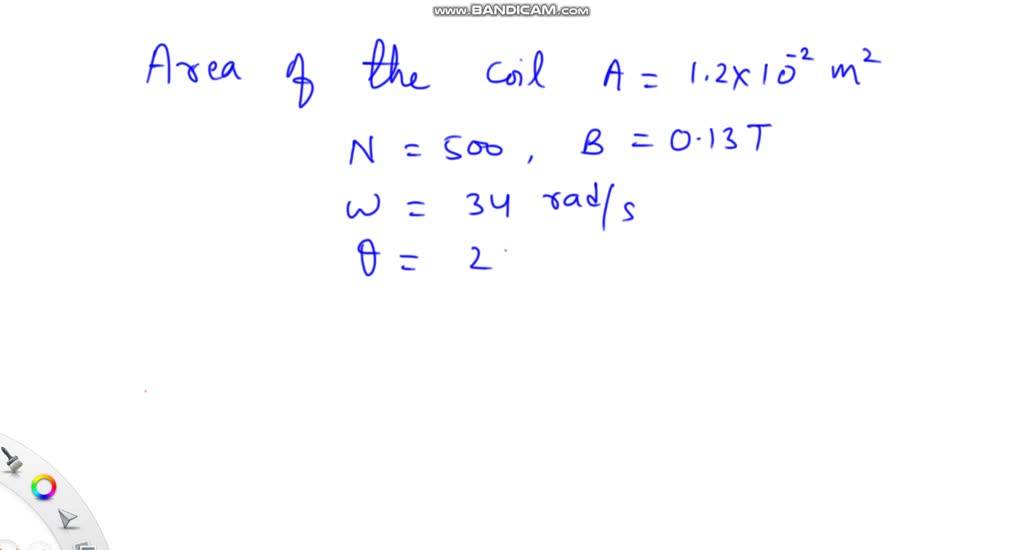 www.BANDICAM.com
Area of the coil A = 1.2×10⁻² m²
N = 500, B = 0.13T
ω = 34 rad/s
θ = 2